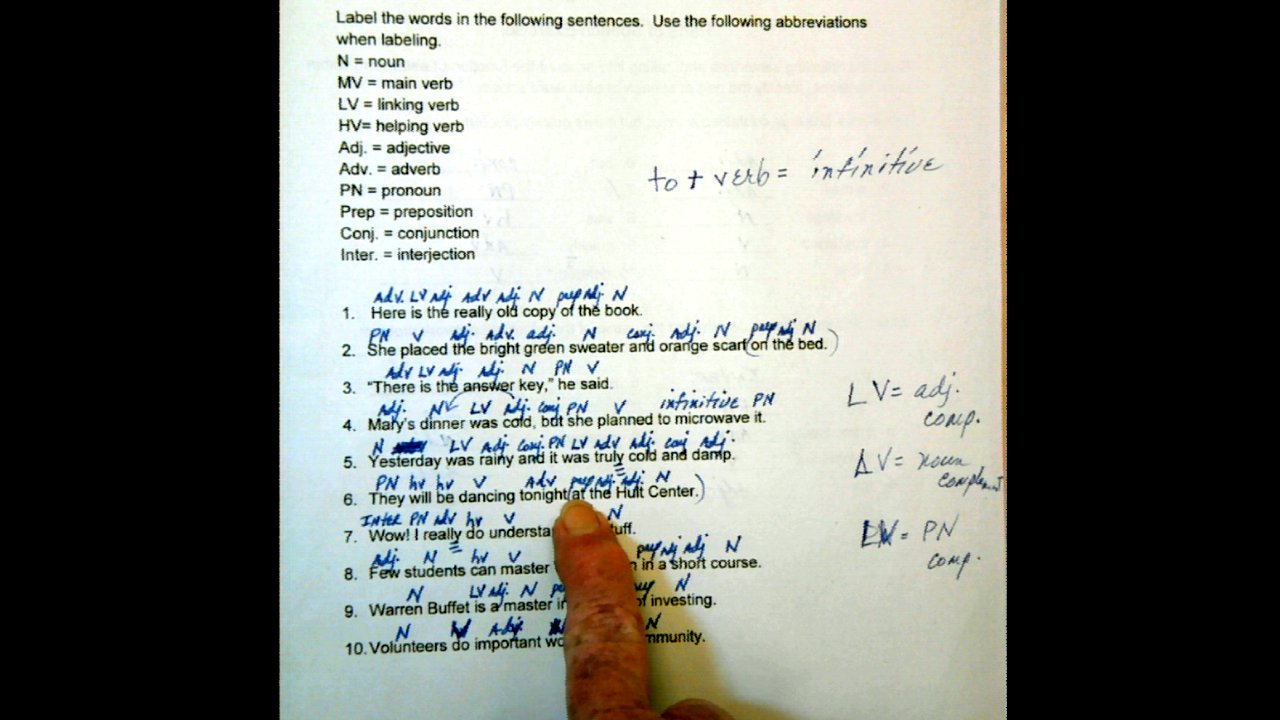 Label the words in the following sentences. Use the following abbreviations
when labeling.
N = noun
MV = main verb
LV = linking verb
HV= helping verb
Adj. = adjective
Adv. = adverb
PN = pronoun
Prep = preposition
Conj. = conjunction
Inter. = interjection
to + verb = infinitive
Adv. LV Adj Adv Adj N prep Adj N
1. Here is the really old copy of the book.
PN V Adj. Adv. adj. N conj. Adj. N prep Adj N
2. She placed the bright green sweater and orange scarf (on the bed.)
Adv LV Adj. Adj. N PN V
3. "There is the answer key," he said.
Adj. N LV Adj. conj PN V infinitive PN
4. Mary's dinner was cold, but she planned to microwave it.
N LV Adj conj. PN LV adv Adj. conj Adj.
5. Yesterday was rainy and it was truly cold and damp.
PN hv hv V Adv prep Adj. adj. N
6. They will be dancing tonight (at the Hult Center.)
Inter PN adv hv V N
7. Wow! I really do understa uff.
Adj. N hv V prep Adj adj N
8. Few students can master in a short course.
N LV Adj. N N
9. Warren Buffet is a master in of investing.
N Adj. N
10. Volunteers do important wo mmunity.
LV = adj. comp.
LV = noun
= PN comp.